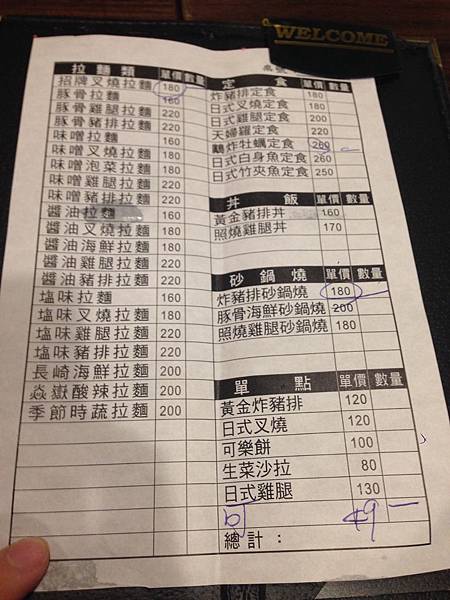 WELCOME
拉麵類 單價 數量
招牌叉燒拉麵 180
豚骨拉麵 160
豚骨雞腿拉麵 220
豚骨豬排拉麵 220
味噌拉麵 160
味噌叉燒拉麵 180
味噌泡菜拉麵 180
味噌雞腿拉麵 220
味噌豬排拉麵 220
醬油拉麵 160
醬油叉燒拉麵 180
醬油海鮮拉麵 180
醬油雞腿拉麵 220
醬油豬排拉麵 220
塩味拉麵 160
塩味叉燒拉麵 180
塩味雞腿拉麵 220
塩味豬排拉麵 220
長崎海鮮拉麵 200
焱嶽酸辣拉麵 200
季節時蔬拉麵 200
定食 單價 數量
炸豬排定食 180
日式叉燒定食 180
日式雞腿定食 200
天婦羅定食 220
鷄炸牡蠣定食 260
日式白身魚定食 260
日式竹夾魚定食 250
丼飯 單價 數量
黃金豬排丼 160
照燒雞腿丼 170
砂鍋燒 單價 數量
炸豬排砂鍋燒 180
豚骨海鮮砂鍋燒 200
照燒雞腿砂鍋燒 180
單點 單價 數量
黃金炸豬排 120
日式叉燒 120
可樂餅 100
生菜沙拉 80
日式雞腿 130
總計：